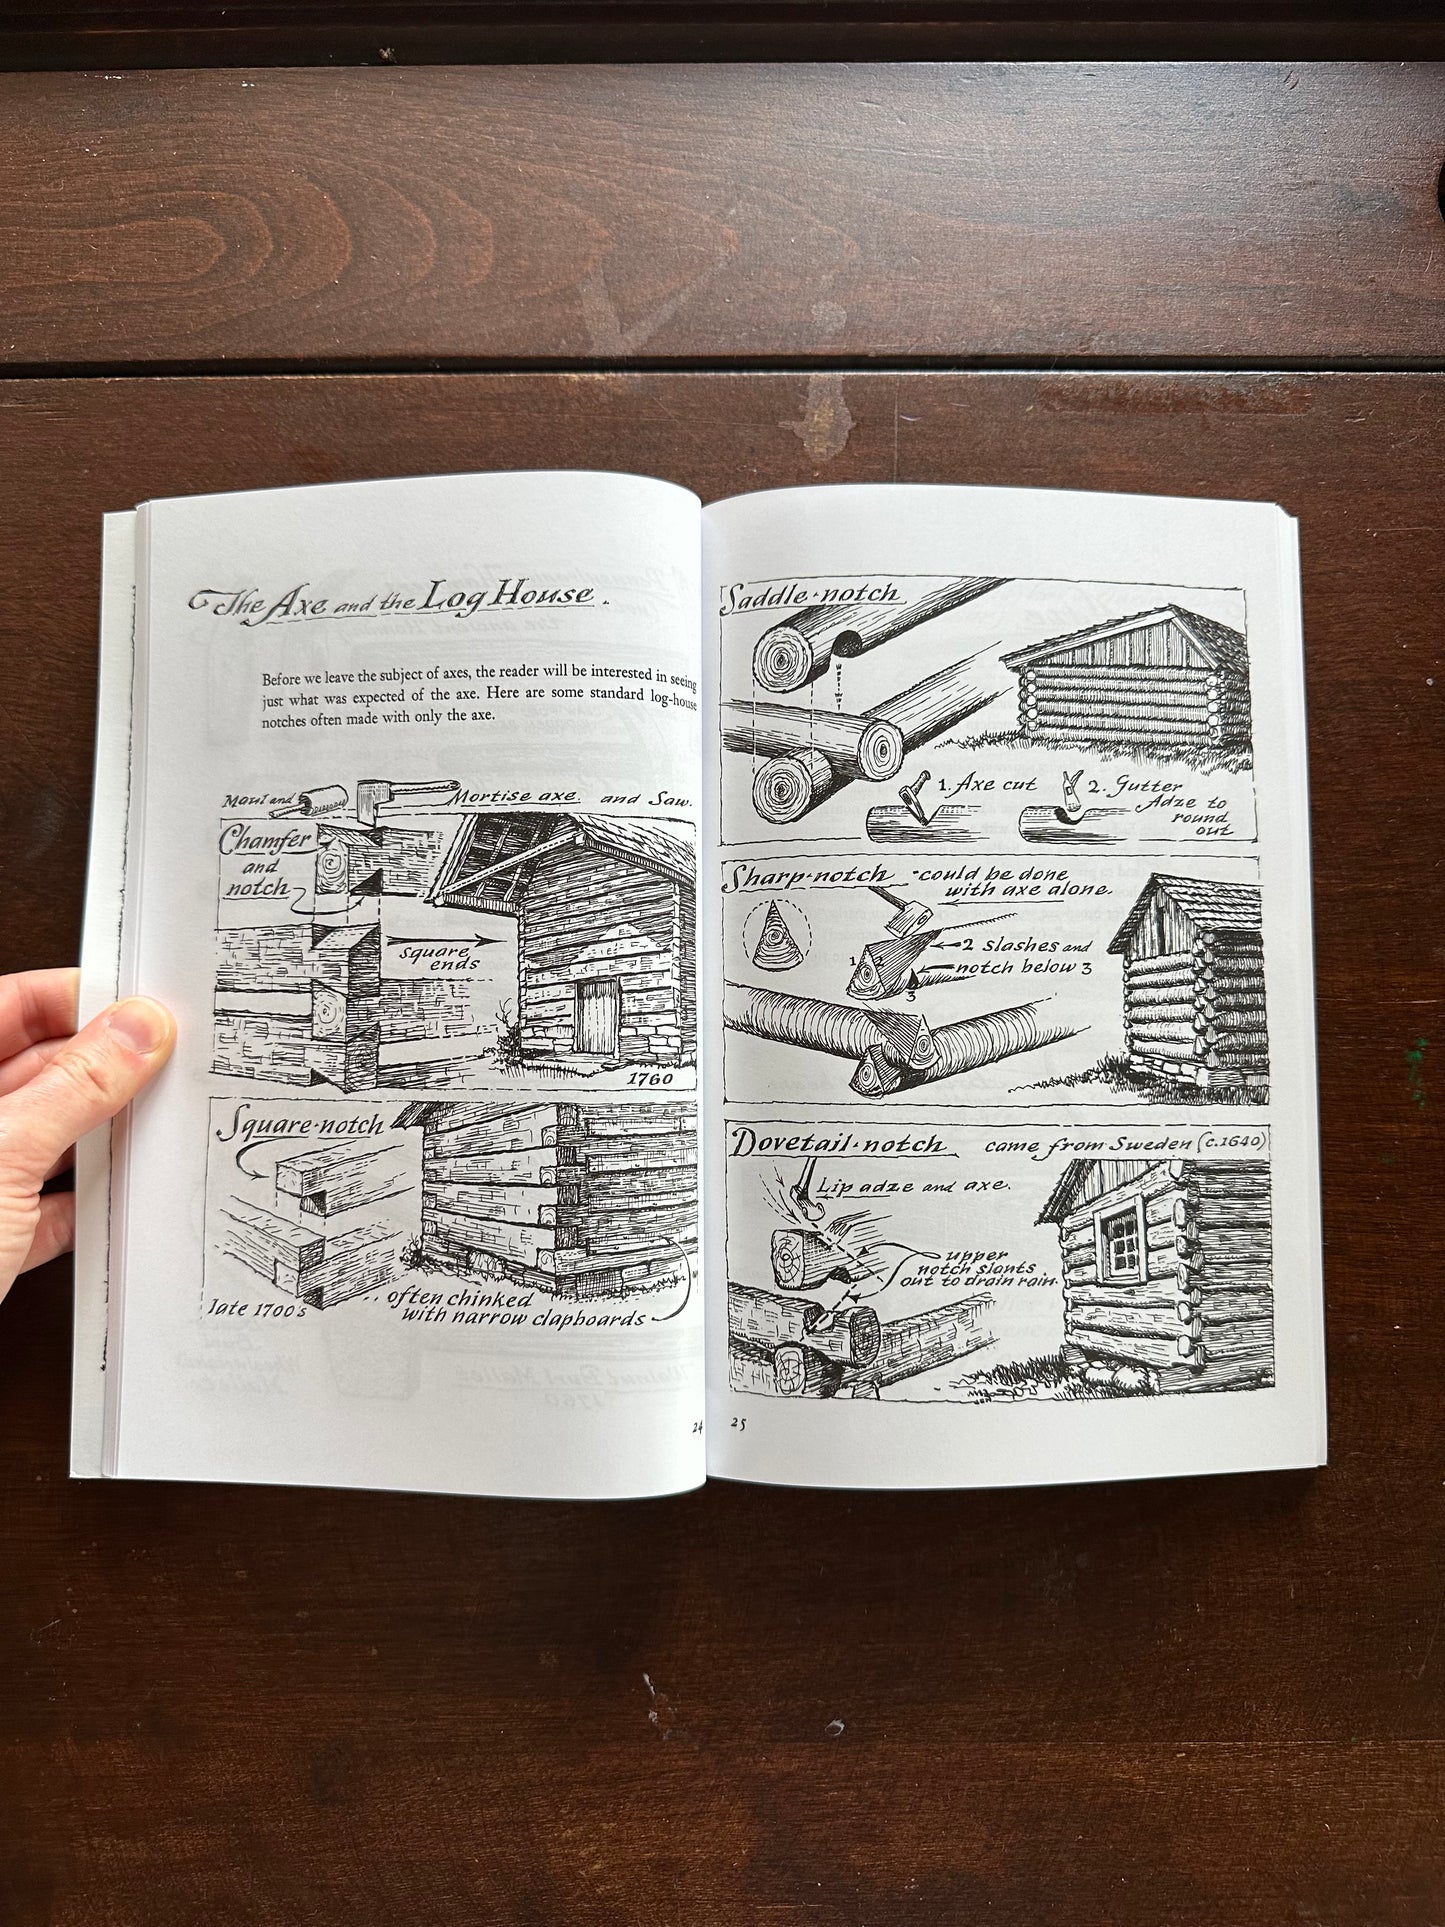 The Axe and the Log House.
Before we leave the subject of axes, the reader will be interested in seeing
just what was expected of the axe. Here are some standard log-house
notches often made with only the axe.
Maul and
Mortise axe. and Saw.
Chamfer
and
notch
square
ends
1760
Square-notch
late 1700's
.. often chinked
with narrow clapboards
24
Saddle-notch
1. Axe cut
2. Gutter
Adze to
round
out
Sharp-notch - could be done
with axe alone.
1 2
2 slashes and
notch below 3
3
Dovetail-notch came from Sweden (c.1640)
Lip adze and axe.
upper
notch slants
out to drain rain.
25